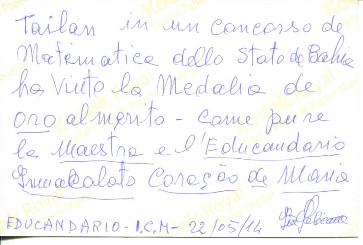 Tailan in un concorso de
Matematica dello Stato de Bahia
ha Vinto la Medalia de
oro al merito - come pure
la Maestra e l'Educandario
Immacolato Coração de Maria
EDUCANDARIO - I.C.M - 22/05/14